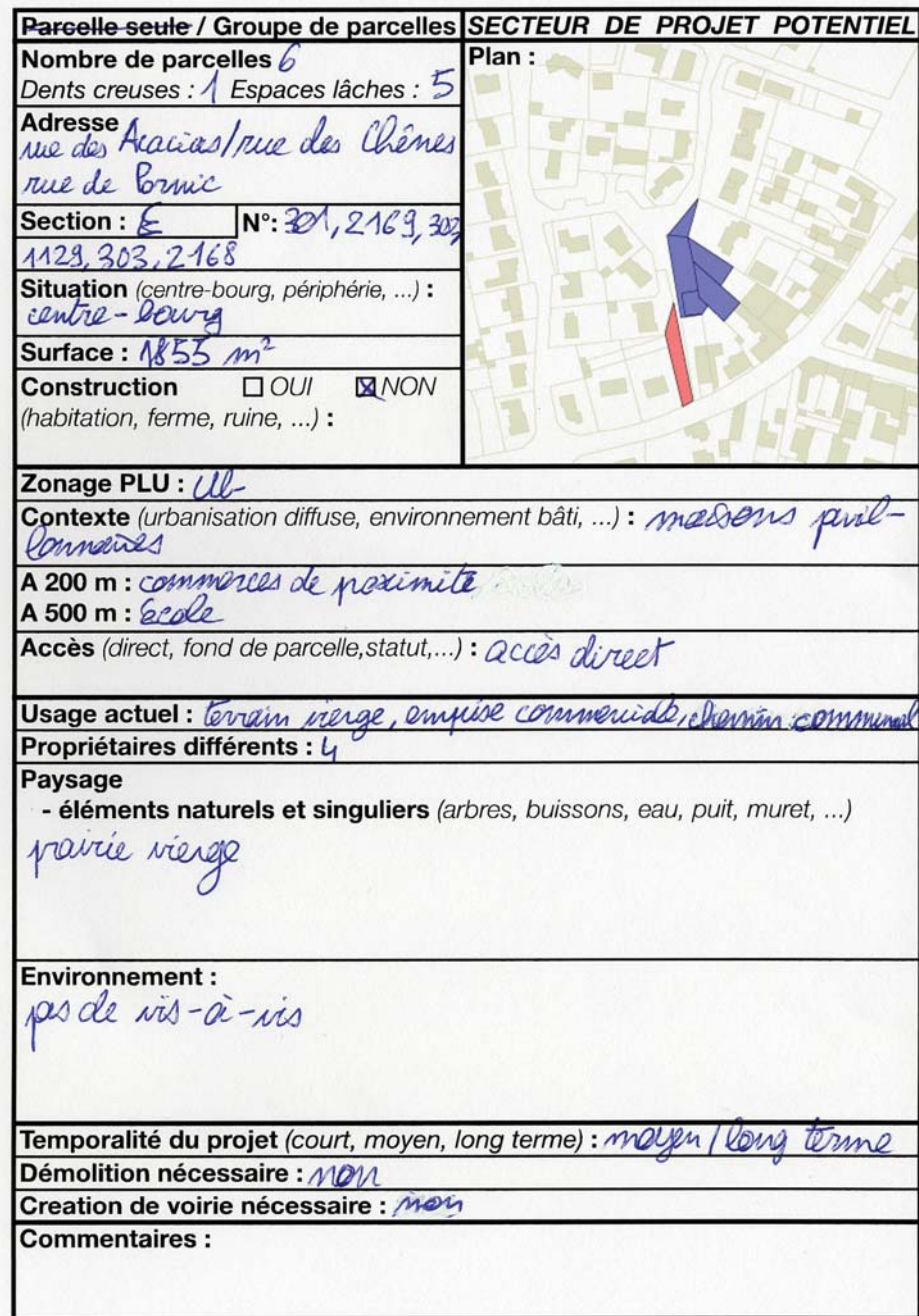 Parcelle seule / Groupe de parcelles
SECTEUR DE PROJET POTENTIEL
Nombre de parcelles 6
Dents creuses : 1 Espaces lâches : 5
Adresse
rue des Acacias/rue des Chênes
rue de Pornic
Section : E N°: 301, 2169, 302,
1129, 303, 2168
Situation (centre-bourg, périphérie, ...) :
centre-bourg
Surface : 1855 m²
Construction ☐ OUI ☒ NON
(habitation, ferme, ruine, ...) :
Plan :
Zonage PLU : Ub
Contexte (urbanisation diffuse, environnement bâti, ...) : maisons pavil-
lonnaires
A 200 m : commerces de proximité
A 500 m : école
Accès (direct, fond de parcelle,statut,...) : accès direct
Usage actuel : terrain vierge, emprise commerciale, chemin communal
Propriétaires différents : 4
Paysage
- éléments naturels et singuliers (arbres, buissons, eau, puit, muret, ...)
prairie vierge
Environnement :
pas de vis-à-vis
Temporalité du projet (court, moyen, long terme) : moyen / long terme
Démolition nécessaire : non
Creation de voirie nécessaire : non
Commentaires :